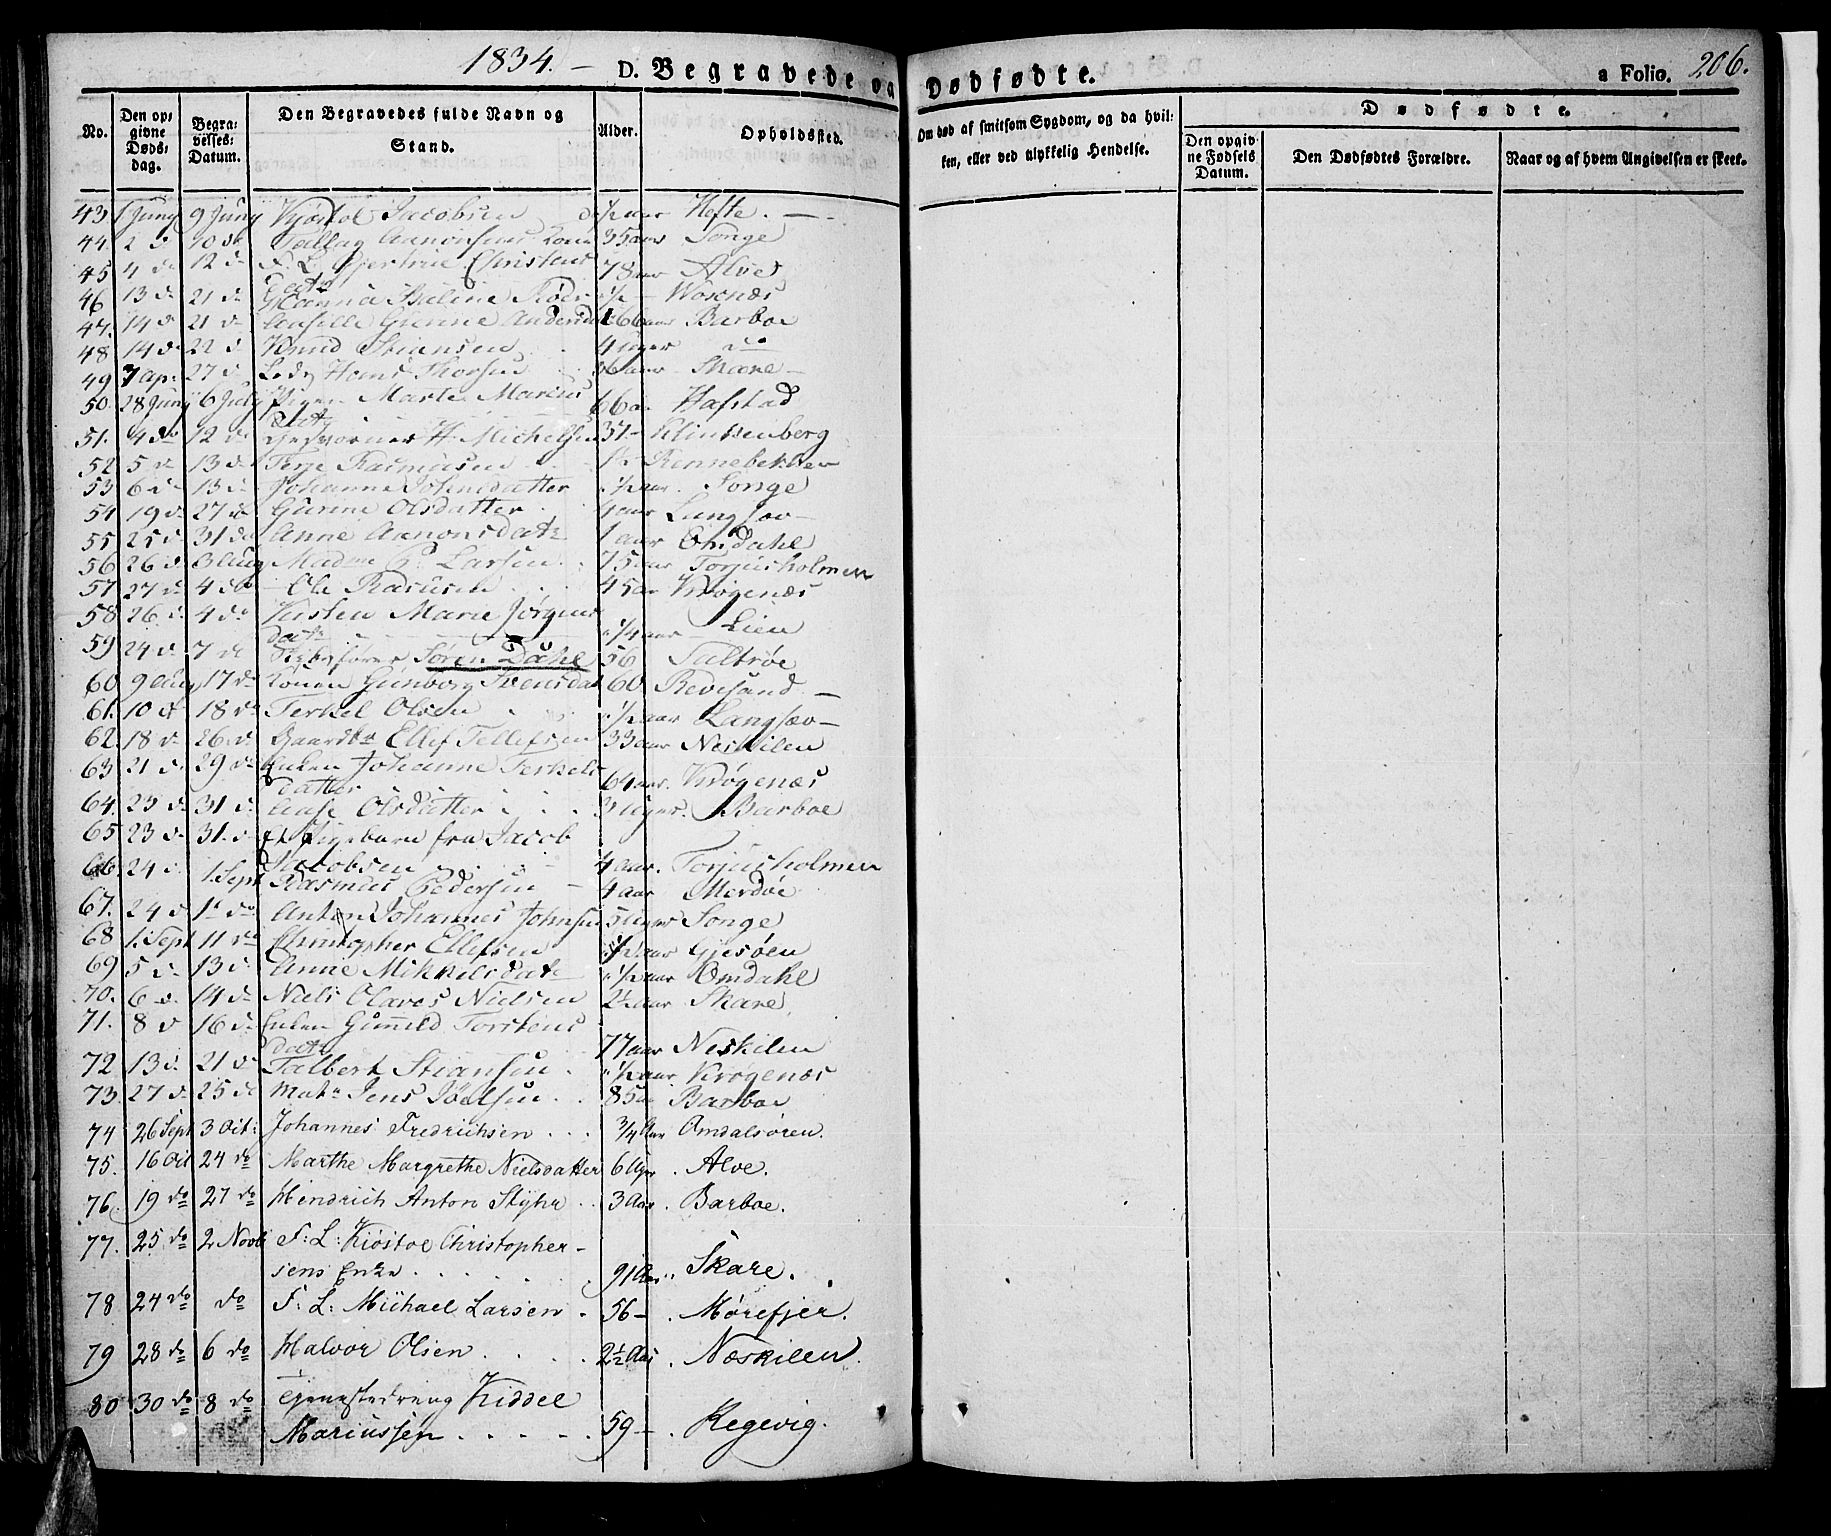 1834. — D. Begravede og Dødfødte. a Folio. 206.
No. Den opgivne Dødsdag. Begravelses-Datum. Den Begravedes fulde Navn og Stand. Alder. Opholdssted. Om død af smitsom Sygdom, og da hvilken, eller ved ulykkelig Hendelse. Dødfødte.
Den opgivne Fødsels Datum. Den Dødfødtes Forældre. Naar og af hvem Angivelsen er skeet.
43 1 Juny 9 Juny Kjøstol Jacobsen ½ aar Hefte.
44. 2 do 10 do Tallag Aanonsens Kone 35 aar Songe
45 4 do 12 do F. L. Gjertrue Christens
Datr 78 aar Alve
46 13 do 21 do Theline ½ — Woxnæs
47. 14 do 21 do Gunne Andersd 66 aar Barboe
48 14 do 22 do Knud Stiansen 4 uger do
49 7 ap: 27 do Hans Thorsen 26 aar Skare
50. 28 Juny 6 July Pigen Marte Marius
Datr 66 a. Hafstad
51. 4 do 12 do H. Michelsen 37 — Klintsenberg
52 5 do 13 do Terje Rasmusen 1½ Rennebekken
53 6 do 13 do Johanne Johnsdatter ½ aar. Songe
54 19 do 27 do Gunne Olsdatter 4 aar Langsæv
55 25 do 31 do Anne Aanonsdatr 1 aar Omdahl
56 26 do 3 Aug Madme P. Larsen 75 aar Torjusholmen
57. 27 do 4 do Ole Rasusen 45 aar Krøgenæs
58 26 do 4 do Kirsten Marie Jørgens
datr ¼ aar Lien
59 24 do 7 do Søren Dahl 56 Saltrøe
60 9 Aug 17 do Konen Gunborg Svensdat 60 Revesand —
61. 10 do 18 do Terkel Olsen ½ aar Langsæv —
62. 18 do 26 do Gaardbr Ellef Tellefsen 33 aar Neskilen
63 21 do 29 do Enken Johanne Terkels
datter 64 aar. Krøgenæs
64. 23 do 31 do Aase Olsdatter 3 uger. Barboe
65 23 do 31. do Et Pigebarn fra Jacob
Jacobsen 4 aar. Torjusholmen
66 24 do 1 Sept Rasmus Pedersen — 4 aar Merdøe
67. 24 do 1 do Anton Johannes Johnsen 5 uger Songe
68 1. Sept 11 do Christopher Ellefsen ½ aar Gjesøen
69 5 do 13 do Anne Mikkelsdatr ½ aar Omdahl
70. 6 do 14 do Niels Olaves Nielsen 2½ aar Skare,
71. 8 do 16 do Enken Gunild Torstens
datr 77 aar Neskilen
72 13 do 21 do Talbert Stiansen ½ aar Krøgenæs
73. 27 do 25 do Matr Jens Joelsen 85 a Barboe
74 26 Sept 3 Oct: Johannes Fredrichsen ¾ Aar Omdalsøren.
75. 16 Oct 24 do Marthe Margrethe Nielsdatter 6 Uger. Alve.
76. 19 do 27 do Hendrich Anton Styhr 3 Aar. Barboe.
77. 25 do 2 Novb F: L: Kiøstoe Christopher-
sens Enke 91 Aar Skare.
78 24 do do F: L: Michael Larsen 56 —. Mørefjer.
79 28 do 6 do Halvor Olsen 2½ Aar. Næskilen.
80 30 do 8 do Tjenestedreng Kiddel
Mariussen 59 —. Regevig.